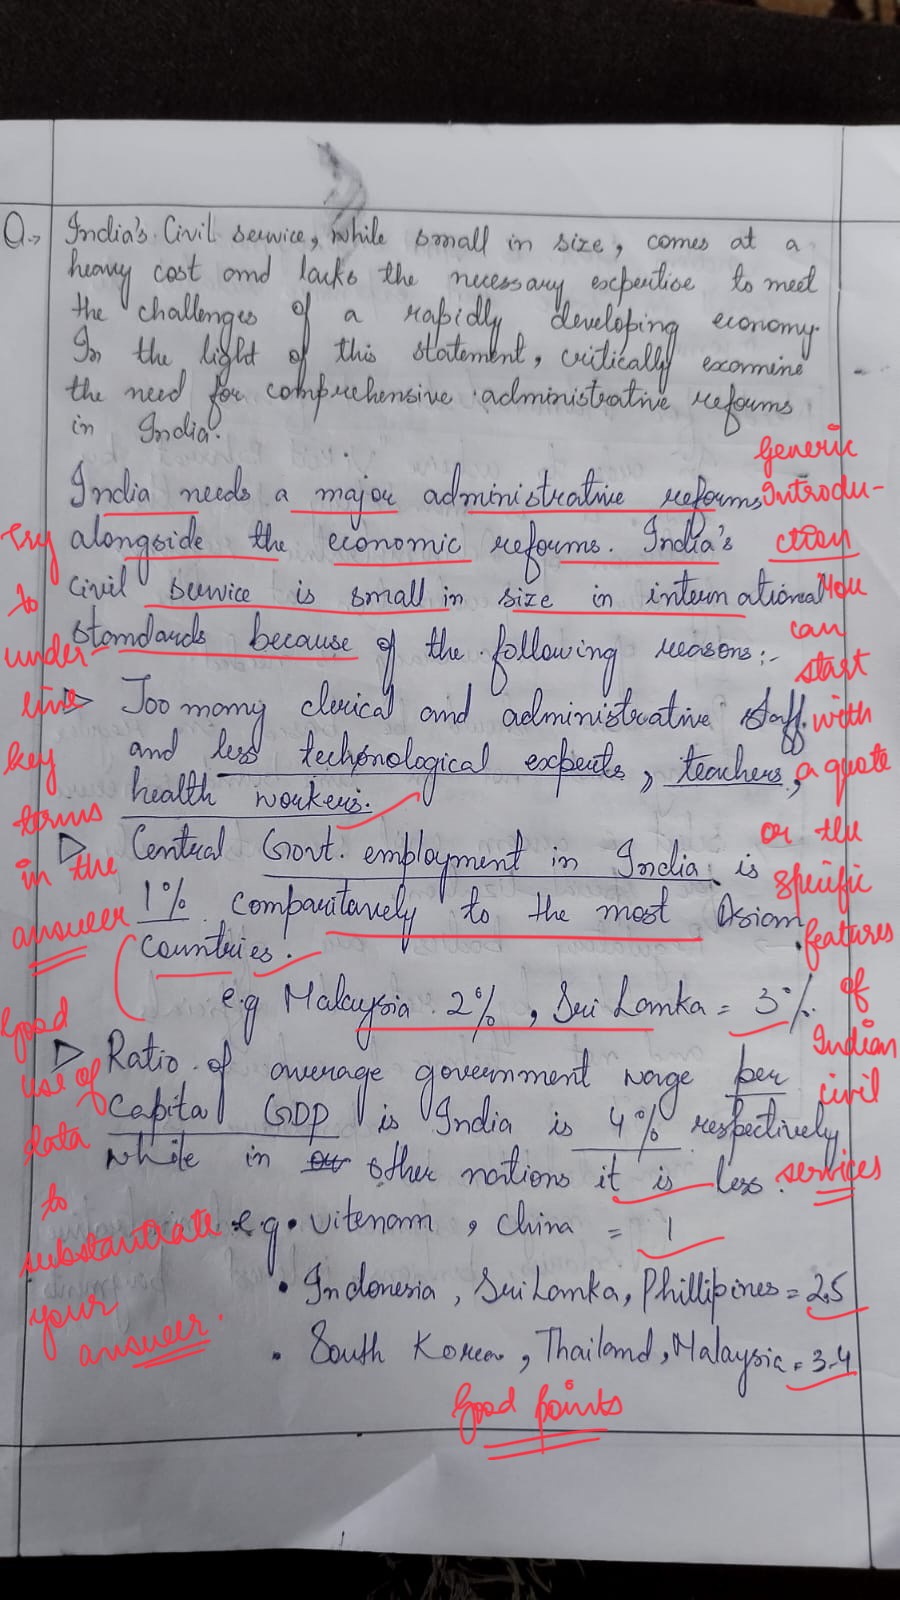 Q.→ India's Civil service, while small in size, comes at a
heavy cost and lacks the necessary expertise to meet
the challenges of a rapidly developing economy.
In the light of this statement, critically examine
the need for comprehensive administrative reforms
in India.
India needs a major administrative reforms
alongside the economic reforms. India's
civil service is small in size in international
standards because of the following reasons:-
▷ Too many clerical and administrative staff
and less technological experts, teachers,
health workers.
▷ Central Govt. employment in India is
1% comparitavely to the most Asian
countries.
e.g Malaysia 2%, Sri Lanka = 3%
▷ Ratio of average government wage per
Capital GDP is India is 4% respectively
while in other nations it is less.
e.g • Vitenam, China = 1
• Indonesia, Sri Lanka, Phillipines = 2.5
• South Korea, Thailand, Malaysia = 3-4
Generic
Introdu-
ction
You
can
start
with
a quote
or the
specific
features
of
Indian
civil
services
Try
to
under
line
key
terms
in the
answer
Good
use of
data
to
substantiate
your
answer.
Good points